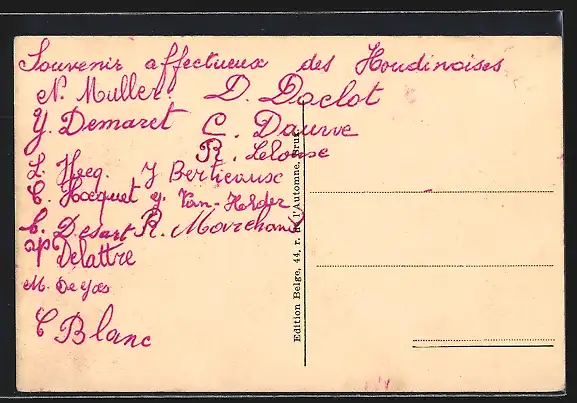 Souvenir affectueux des Houdinoises
N. Muller. D. Doclot
Y. Demaret C. Dauwe
R. Lelouse
L. Hecq. J Berticaux
C. Hocquet y. Van-Helder
C. Desart R. Marchand
Delattre
M. De
C Blanc
Edition Belge, 44, r. de l'Automne, Brux.